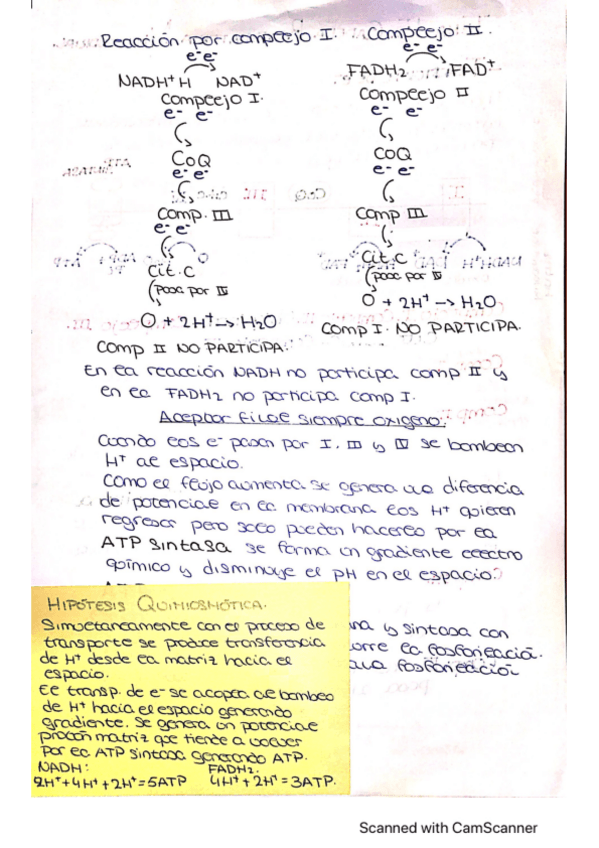 Reacción por complejo I. Complejo II.
e- e- e- e-
NADH+ H NAD+ FADH2 FAD+
Complejo I. Complejo II
e- e- e- e-
CoQ CoQ
e- e- e- e-
Comp. III Comp III
e- e-
Cit. C Cit. C
(pasa por IV (pasa por IV
O + 2H+ → H2O O + 2H+ → H2O
Comp II NO PARTICIPA. Comp I. NO PARTICIPA.
En la reacción NADH no participa comp II y
en el FADH2 no participa comp I.
Aceptor final siempre oxigeno.
Cuando los e- pasan por I, III y IV se bombean
H+ al espacio.
Como el flujo aumenta se genera una diferencia
de potencial en la membrana los H+ quieren
regresar pero solo pueden hacerlo por la
ATP sintasa se forma un gradiente electro
químico y disminuye el pH en el espacio.
HIPÓTESIS QUIMIOSMÓTICA.
Simultaneamente con el proceso de
transporte se produce transferencia
de H+ desde la matriz hacia el
espacio.
El transp. de e- se acopla al bombeo
de H+ hacia el espacio generando
gradiente. Se genera un potencial
protón matriz que tiende a volver
por la ATP sintasa generando ATP.
NADH: FADH2.
2H+ + 4H+ + 2H+ = 5ATP 4H+ + 2H+ = 3ATP.
y sintasa con
la fosforilación.
fosforilación
Scanned with CamScanner